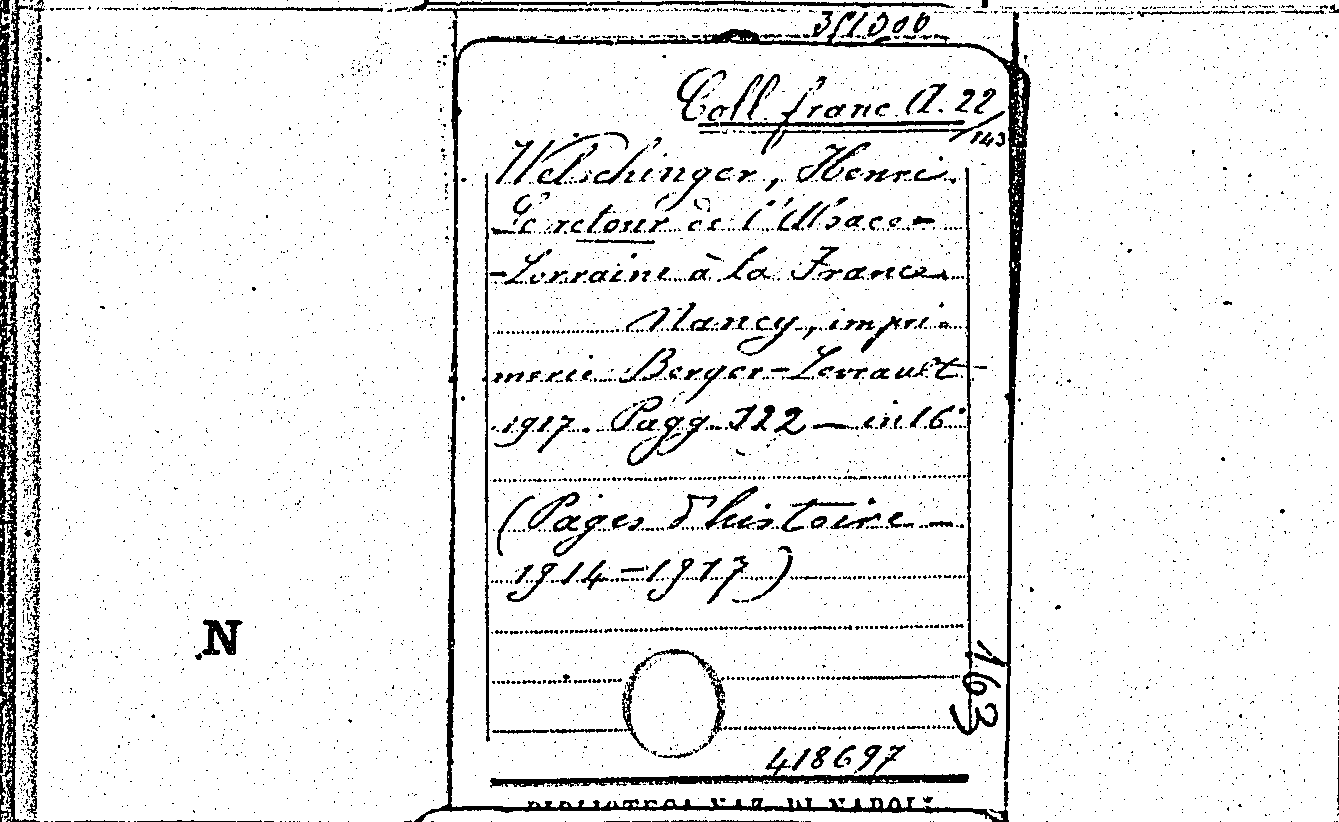 351306
Coll franc A. 22/143
Welschinger, Henri.
Le retour de l'Alsace-
-Lorraine à la France.
Nancy, impri-
merie Berger-Levrault -
1917. Pagg 122 — in 16°
(Pages d'histoire —
1914-1917)
N
163
418697
BIBLIOTECA NAZ. DI NAPOLI